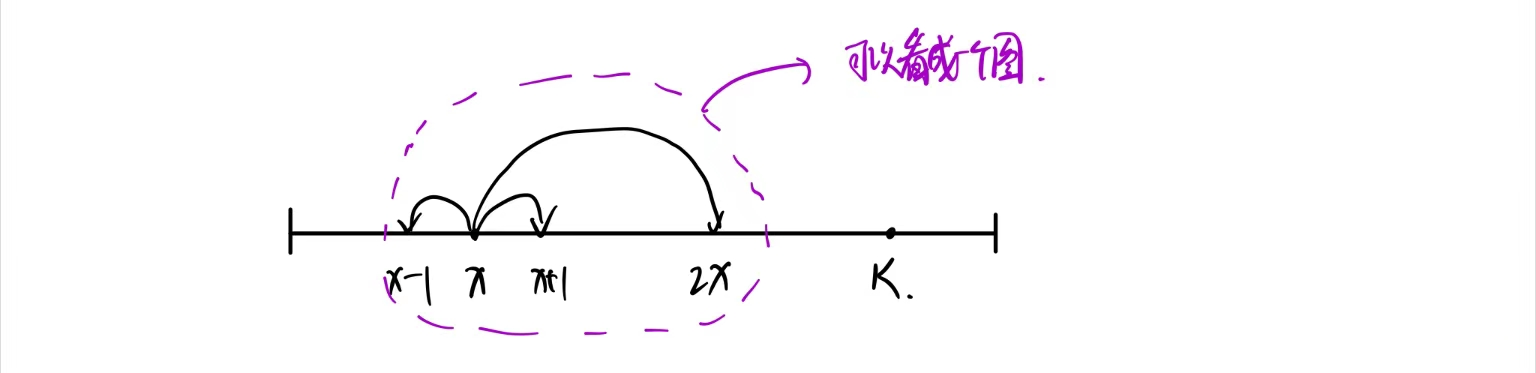 可以看成一个图.
x-1 x x+1 2x K.